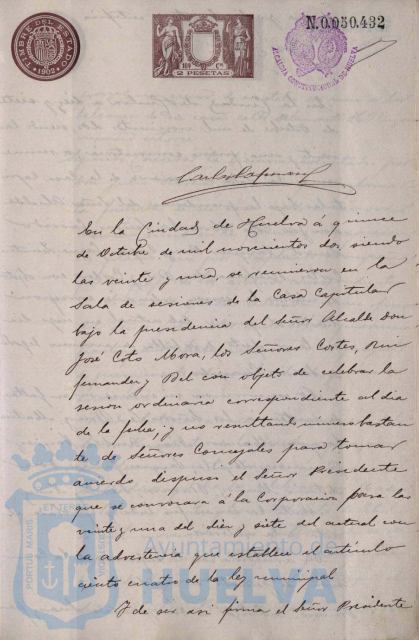 TIMBRE DEL ESTADO
1902
2 PESETAS
N.0.050.432
ALCALDIA CONSTITUCIONAL DE HUELVA
En la Ciudad de Huelva á quince
de Octubre de mil novecientos dos, siendo
las veinte y una, se reunieron en la
Sala de sesiones de la Casa Capitular
bajo la presidencia del Señor Alcalde Don
José Coto Mora, los Señores Cortes, Rui
fernandez y Bel con objeto de celebrar la
sesion ordinaria correspondiente al dia
de la fecha; y no resultando número bastan
te de Señores Concejales para tomar
acuerdo dispuso el Señor Presidente
que se convocara á la Corporacion para las
veinte y una del diez y siete del actual con
la advertencia que establece el artículo
ciento cuatro de la ley municipal
Y de ser asi firma el Señor Presidente
PORTUS MARIS
Ayuntamiento de
HUELVA